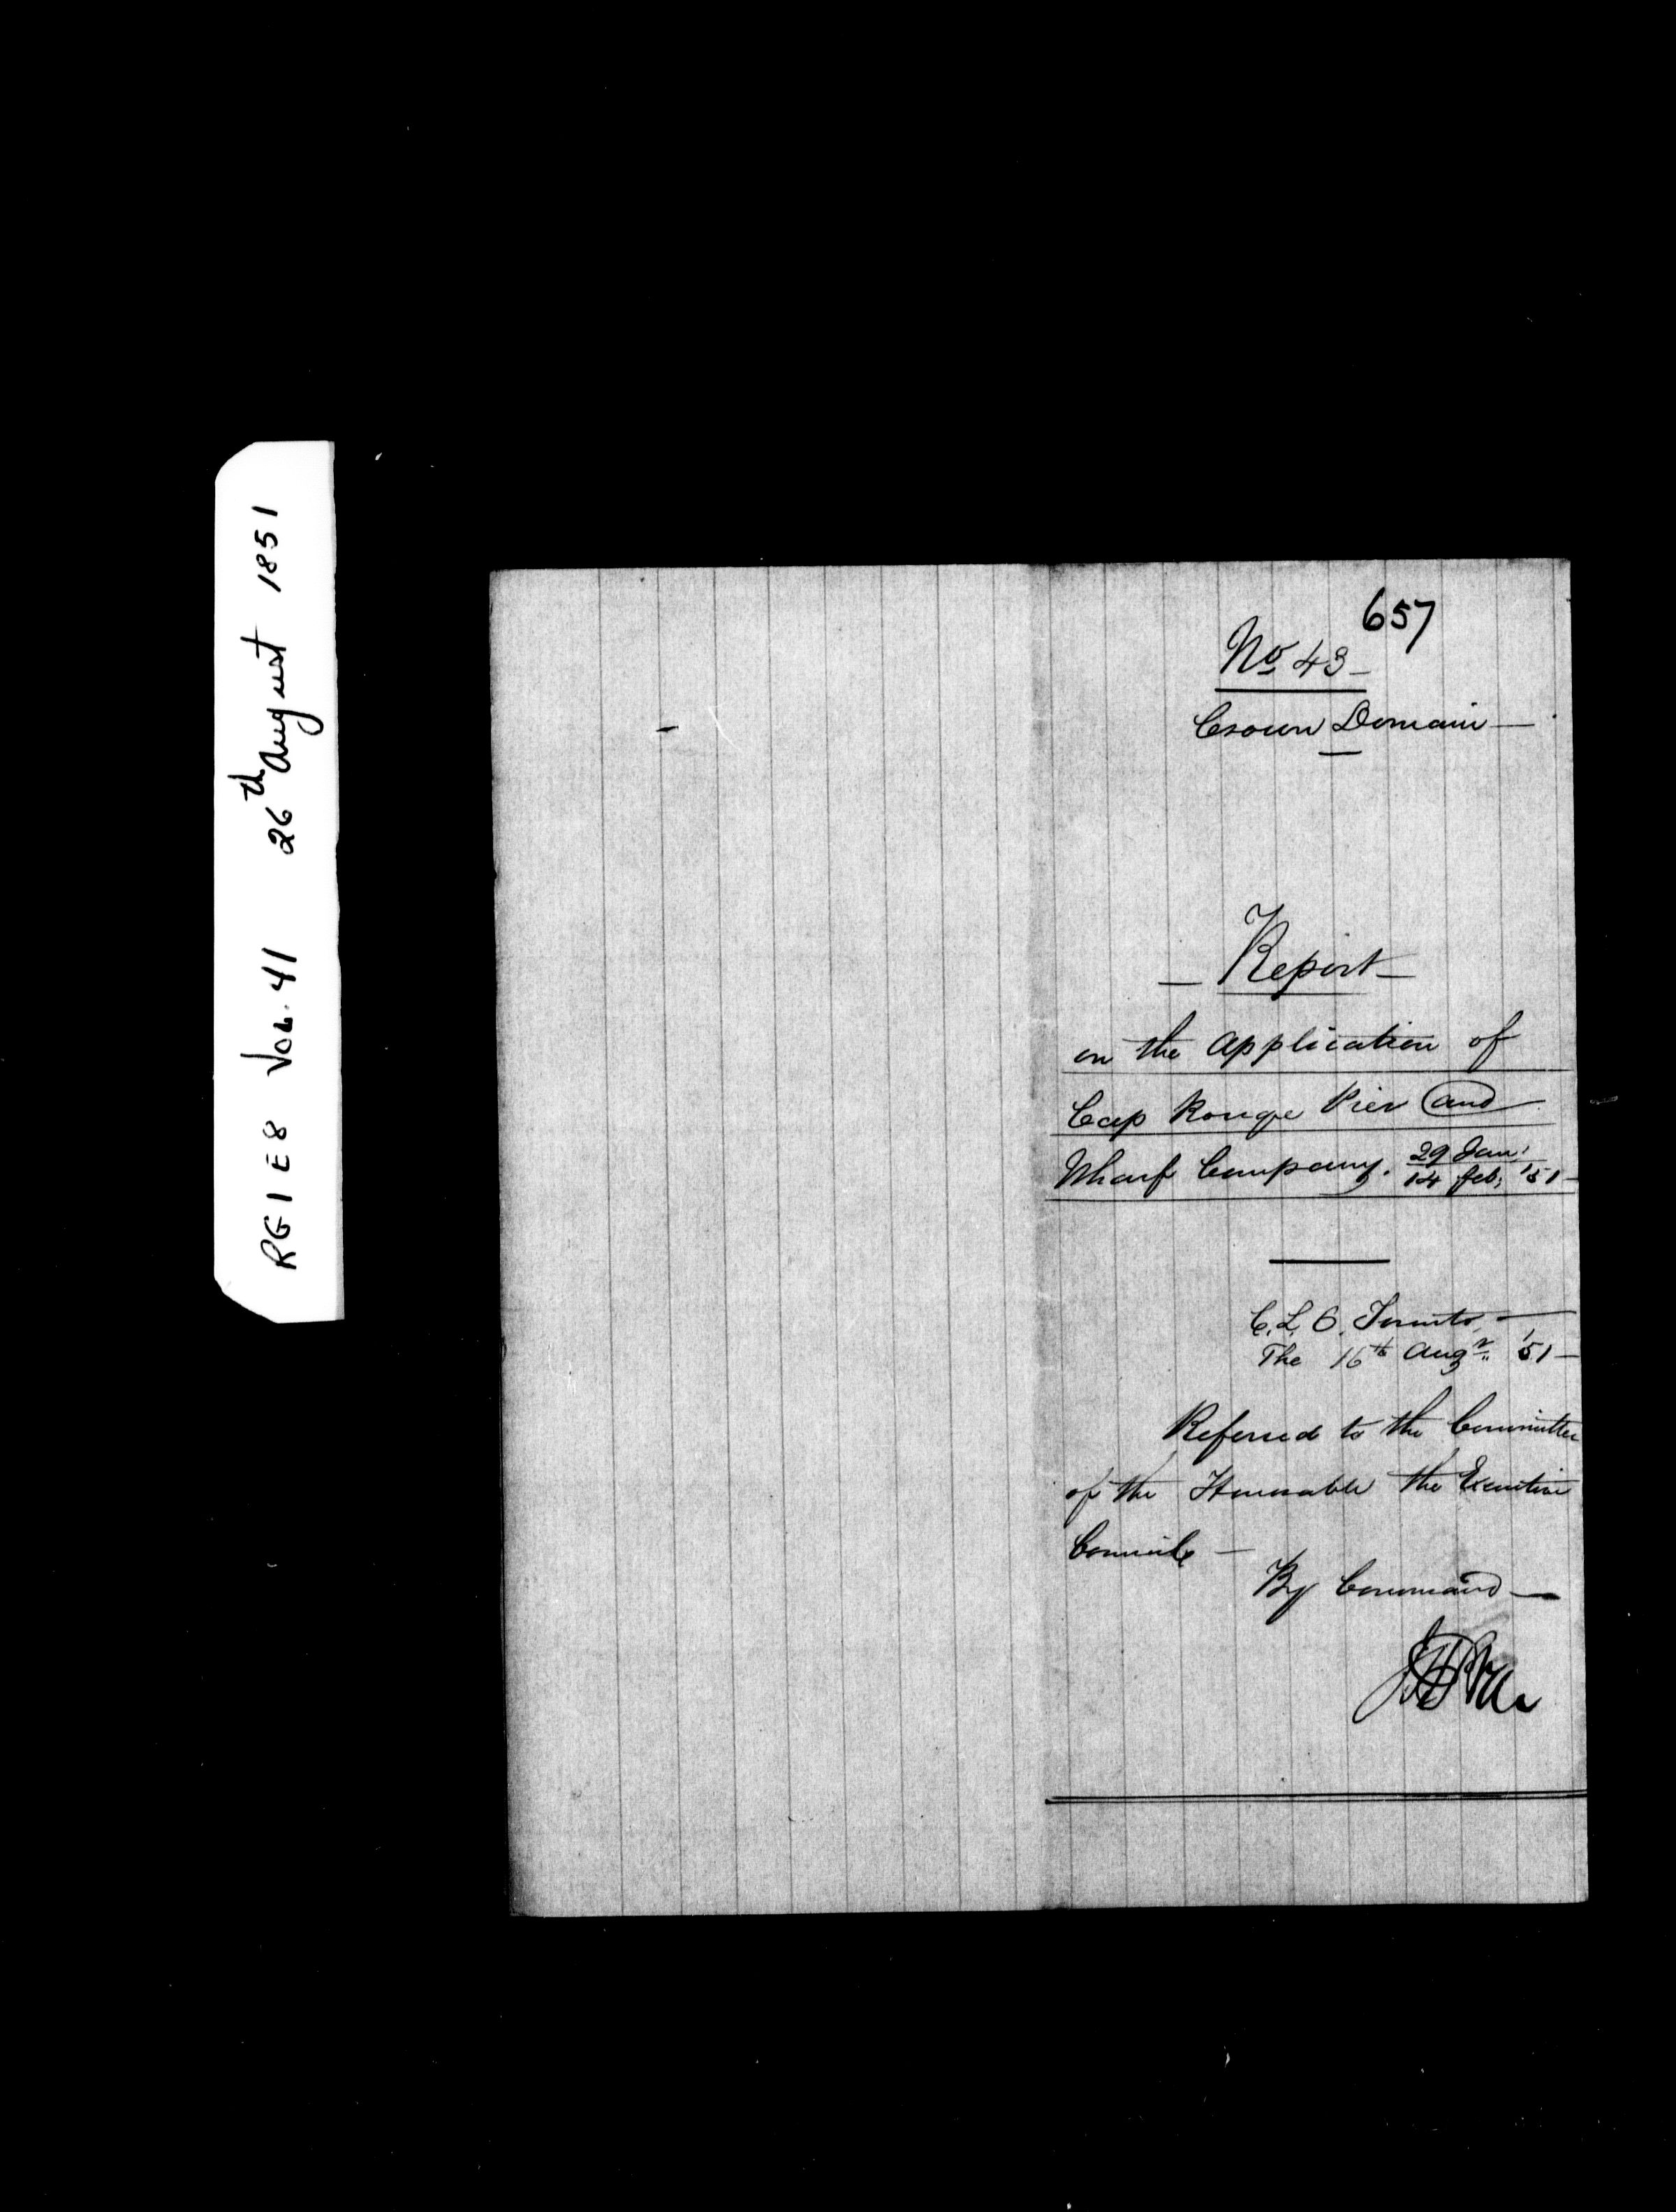 RG 1 E 8 VOL. 41 26th August 1851
657
No 43 —
Crown Domain —
— Report —
on the application of
Cap Rouge Pier and
Wharf Company. 29 Jan:
14 feb: '51 —
C. L. O. Toronto, —
The 16th Augt '51 —
Referred to the Committee
of the Honorable the Executive
Council —
By Command —